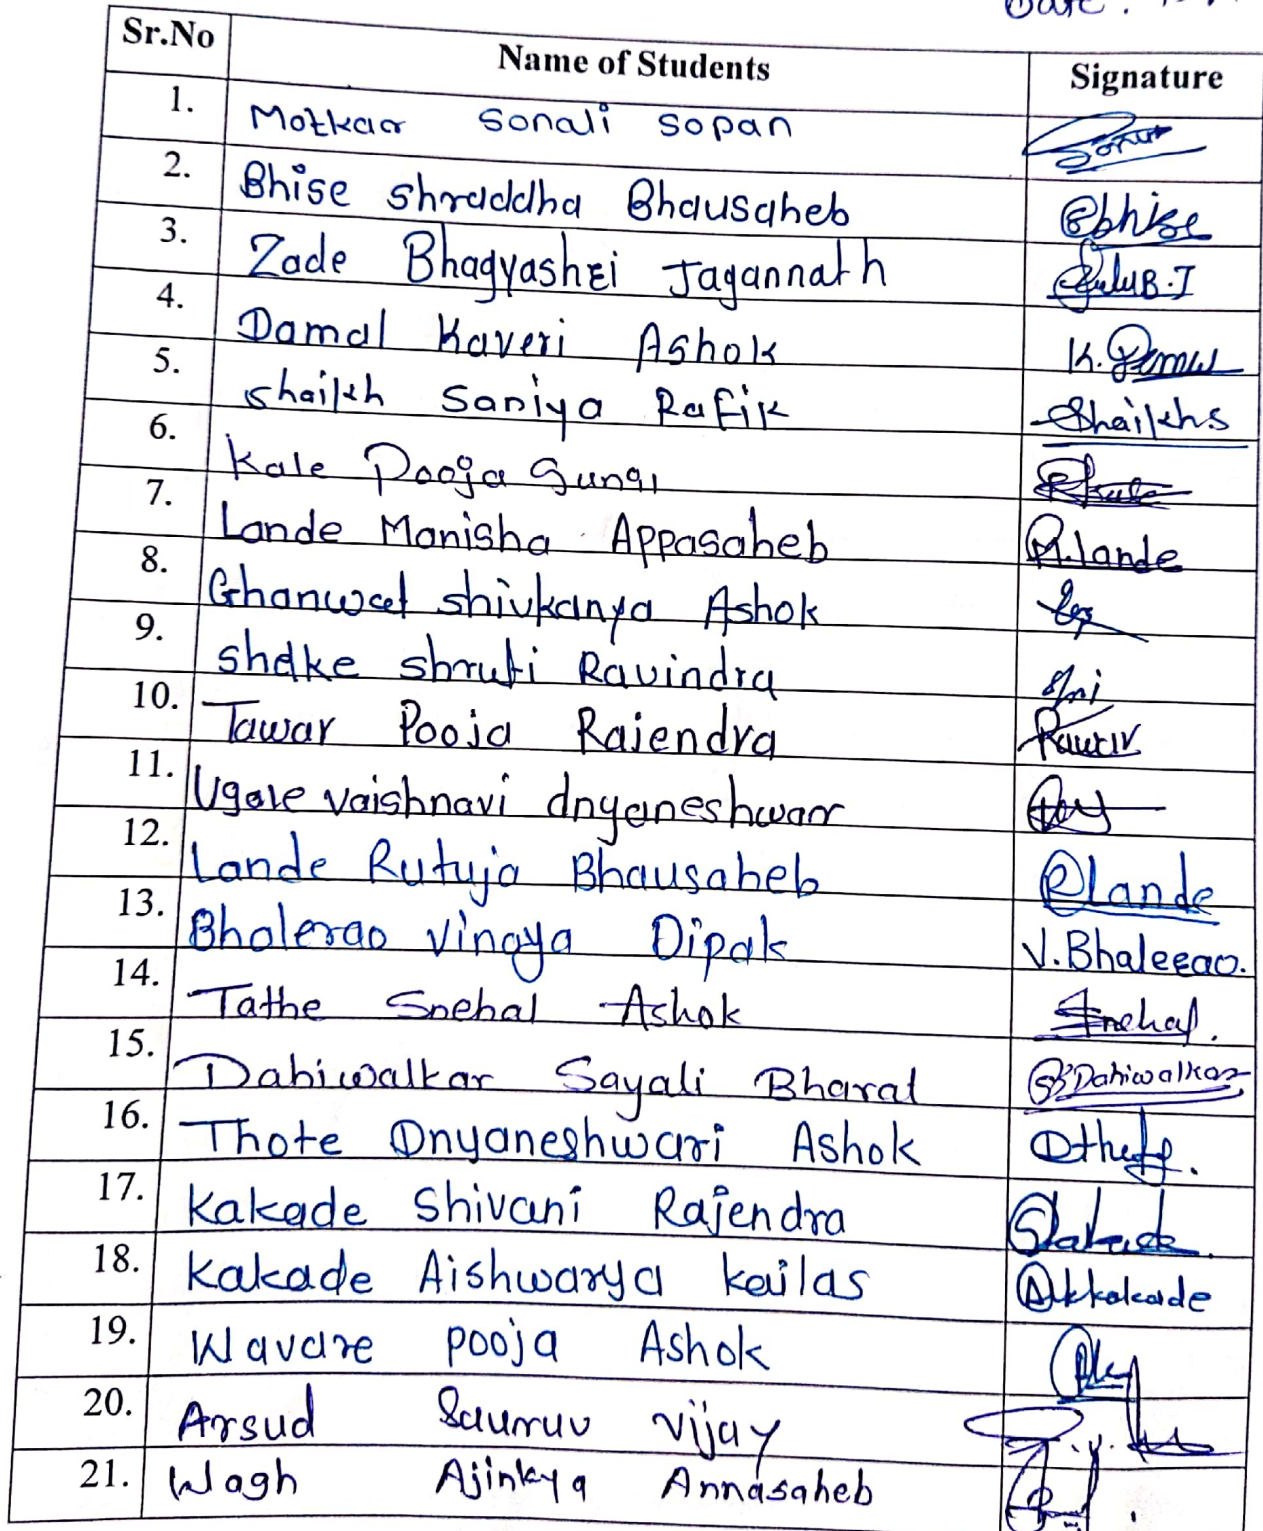 Date :
Sr.No Name of Students Signature
1. Motkar Sonali Sopan
2. Bhise shraddha Bhausaheb Bhise
3. Zade Bhagyashri Jagannath B.J
4. Damal Kaveri Ashok K.
5. shaikh Saniya Rafik Shaikh s
6. Kale Pooja
7. Lande Manisha Appasaheb M.lande
8. Ghanwat shivkanya Ashok
9. shelke shruti Ravindra
10. Tawar Pooja Rajendra
11. Ugale vaishnavi dnyaneshwar
12. Lande Rutuja Bhausaheb R Lande
13. Bhalerao Vinaya Dipak V.Bhalerao.
14. Tathe Snehal Ashok Snehal.
15. Dahiwalkar Sayali Bharat Dahiwalkar
16. Thote Dnyaneshwari Ashok
17. Kakade Shivani Rajendra
18. Kakade Aishwarya kailas Akkakade
19. Wavare pooja Ashok
20. Arsud Saurav vijay
21. Wagh Ajinkya Annasaheb